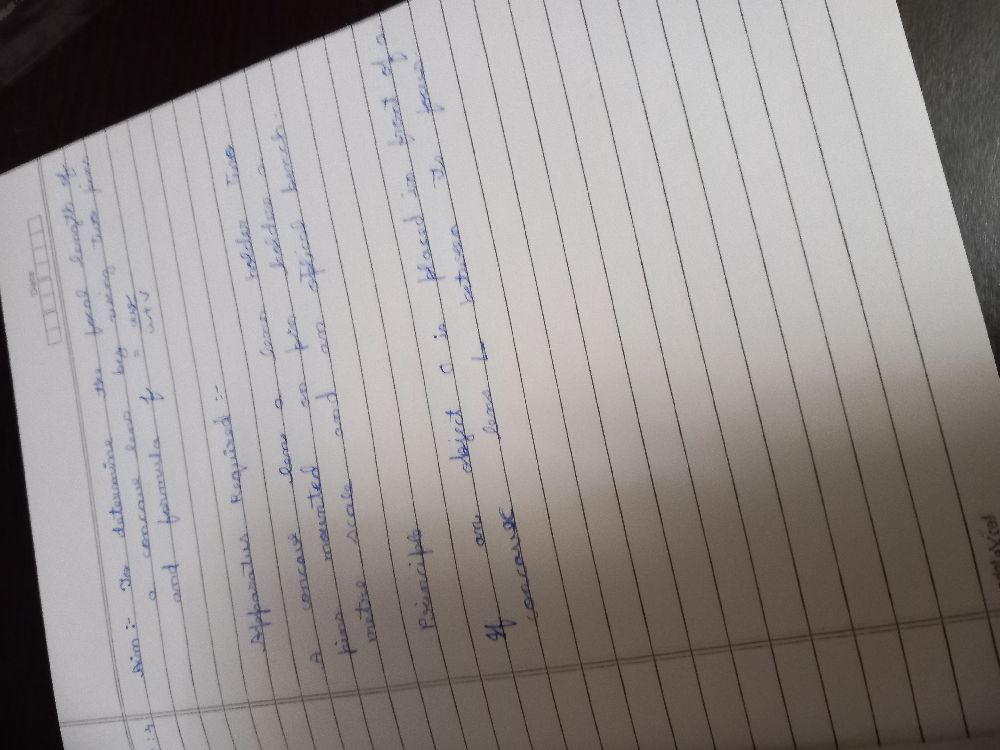 Date
Aim :- To determine the focal length of
a concave lens by using two pins
and formula f = uv
u+v
Apparatus Required :-
A concave lens a lens holder two
pins mounted on pin holders a
metre scale and an optical bench.
Principle
If an object O is placed in front of a
concave lens L between its focus